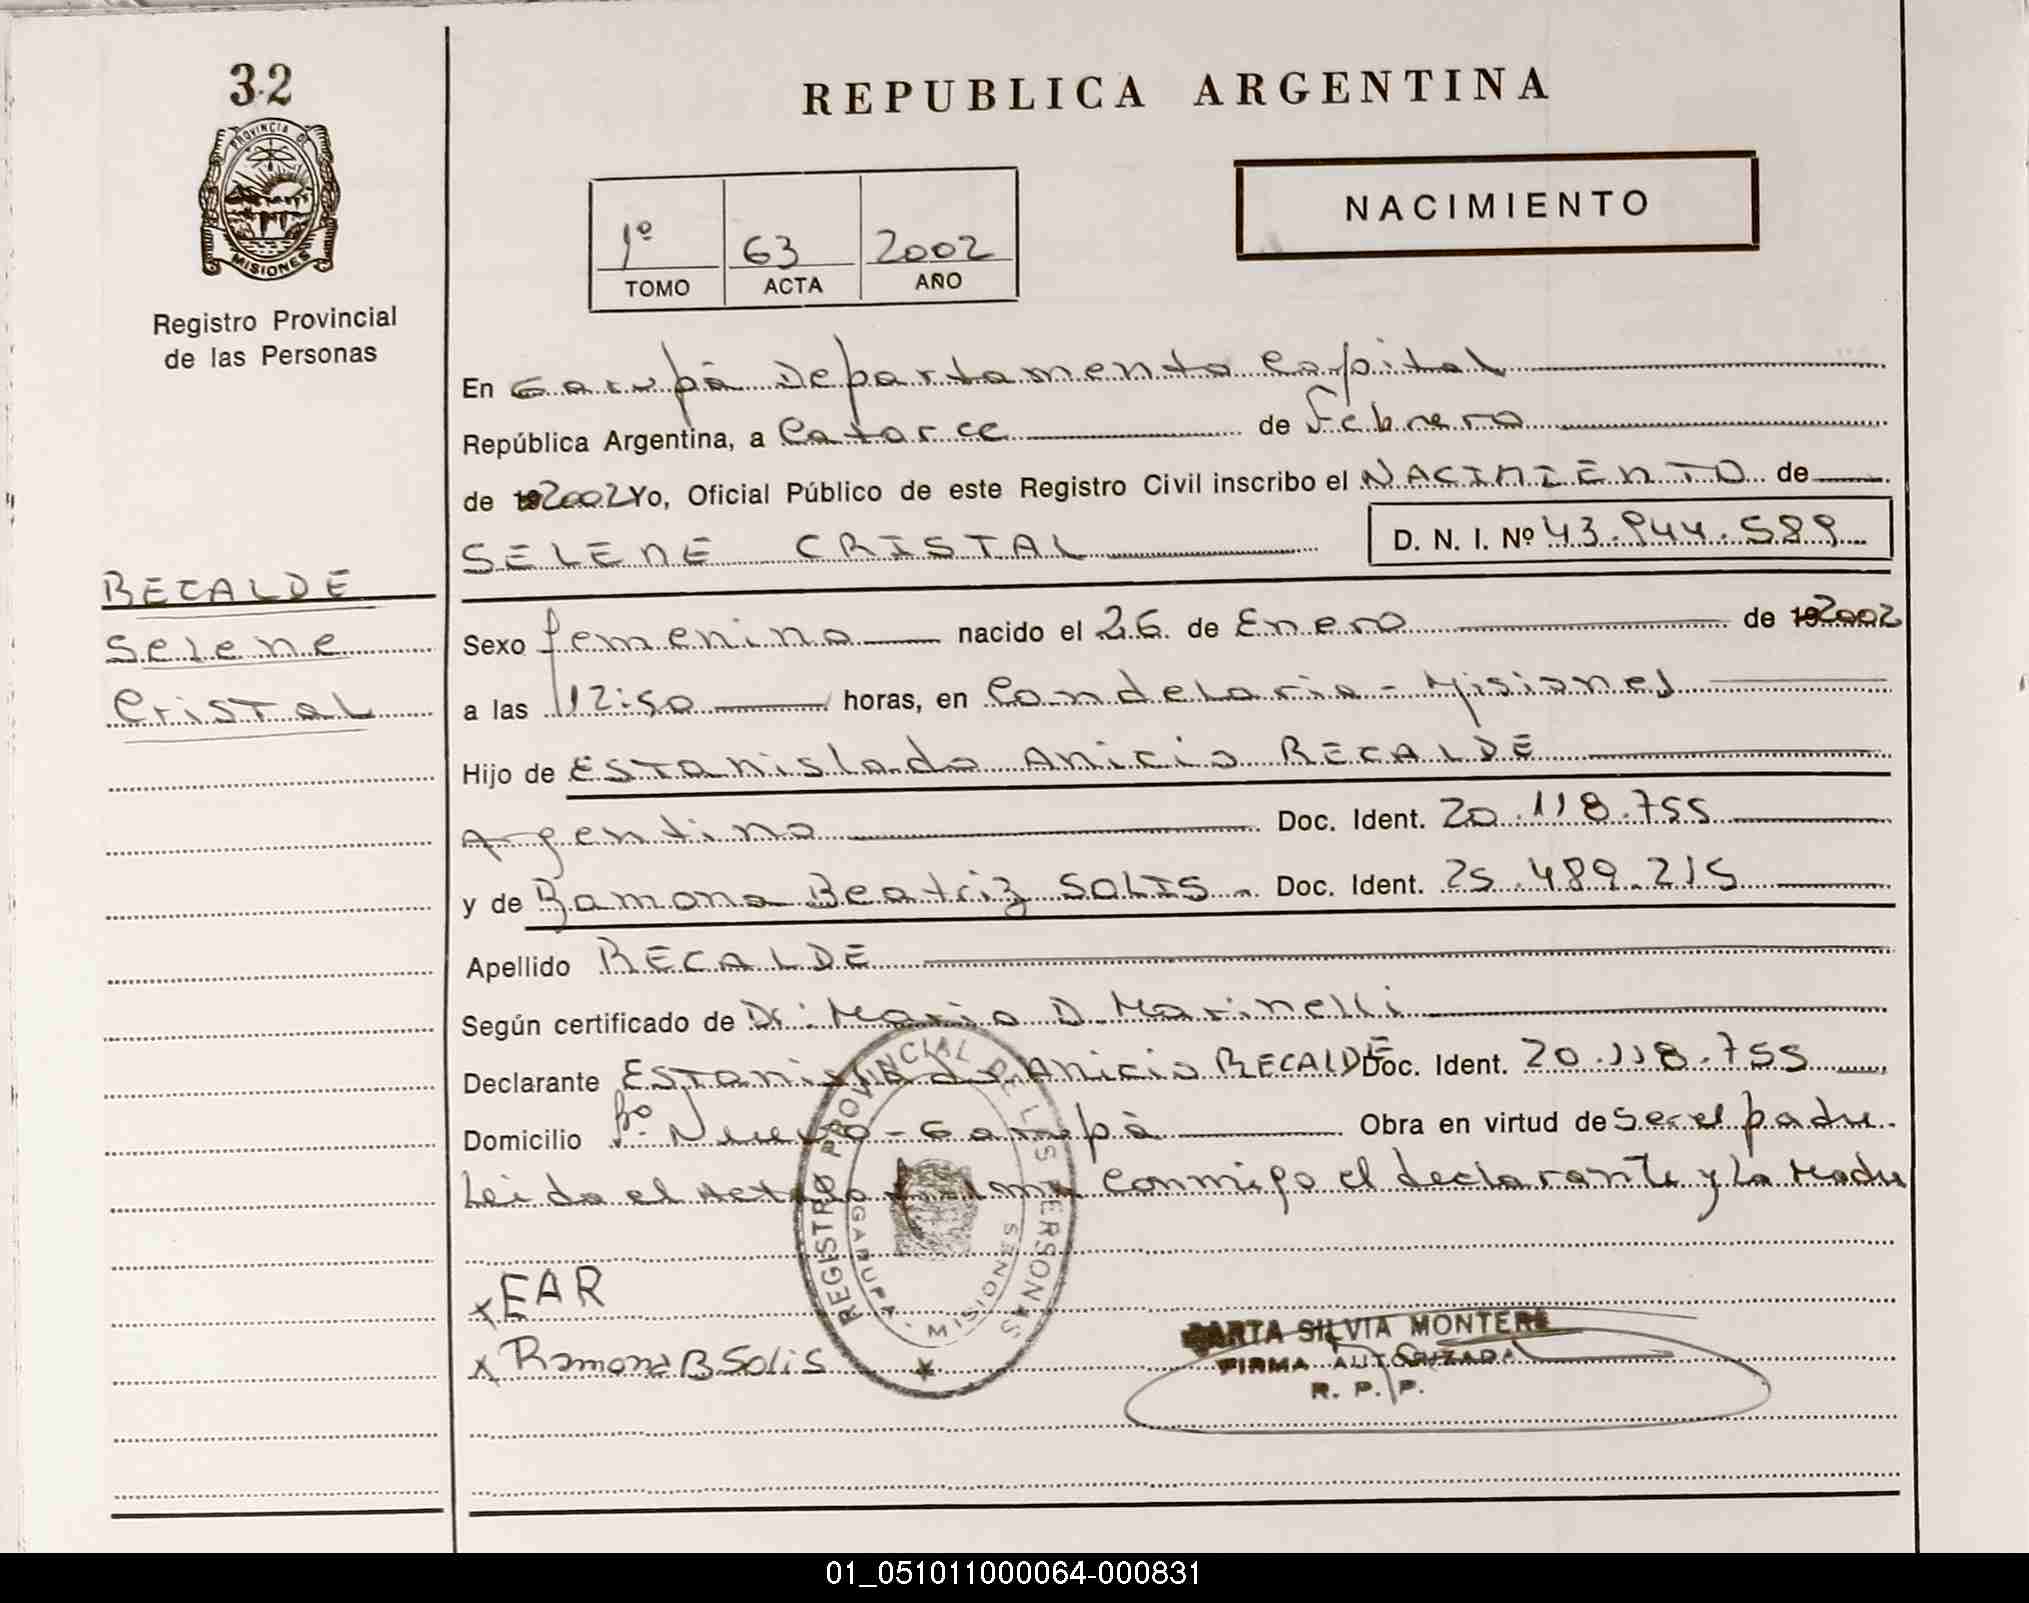 32
PROVINCIA DE
MISIONES
Registro Provincial
de las Personas
RECALDE
Selene
Cristal
REPUBLICA ARGENTINA
1º 63 2002
TOMO ACTA AÑO
NACIMIENTO
En Garupá Departamento Capital
República Argentina, a Catorce de Febrero
de 192002 Yo, Oficial Público de este Registro Civil inscribo el NACIMIENTO de
SELENE CRISTAL D. N. I. Nº 43.944.589
Sexo femenino nacido el 26 de Enero de 192002
a las 12:50 horas, en Candelaria - Misiones
Hijo de Estanislado Anicio RECALDE
Argentino Doc. Ident. 20.118.755
y de Ramona Beatriz SOLIS Doc. Ident. 25.489.215
Apellido RECALDE
Según certificado de Dr. Mario D. Marinelli
Declarante Estanislado Anicio RECALDE Doc. Ident. 20.118.755
Domicilio Bº Nuevo - Garupá Obra en virtud de ser el padre.
Leida el Acta la firman conmigo el declarante y la Madre
REGISTRO PROVINCIAL DE LAS PERSONAS
GARUPA
MISIONES
x EAR
x Ramona B Solis
SILVIA MONTERO
FIRMA AUTORIZADA
R. P. P.
01_051011000064-000831